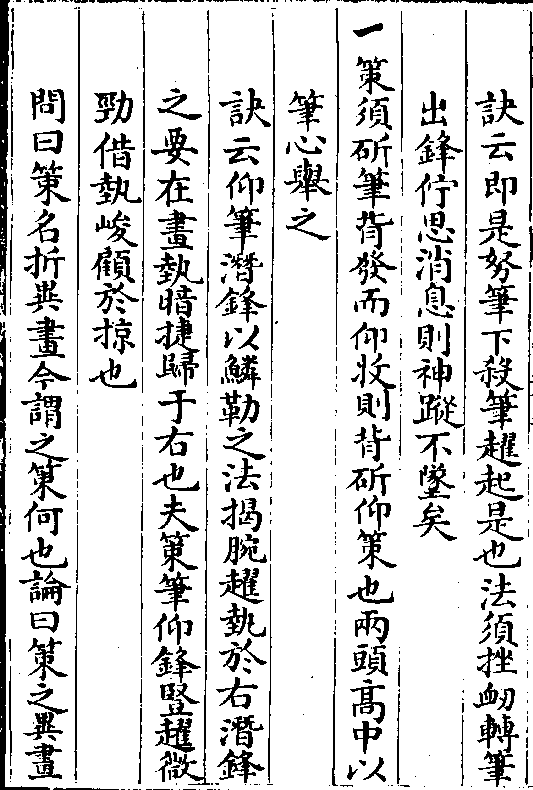 訣云即是努筆下殺筆趯起是也法須挫衂轉筆
出鋒佇思消息則神蹤不墜矣
一策須斫筆背發而仰收則背斫仰策也兩頭髙中以
筆心舉之
訣云仰筆潛鋒以鱗勒之法揭腕趯埶於右潛鋒
之要在畫埶暗捷歸于右也夫策筆仰鋒竪趯微
勁借埶峻顧於掠也
問曰策名折異畫今謂之策何也論曰策之異畫